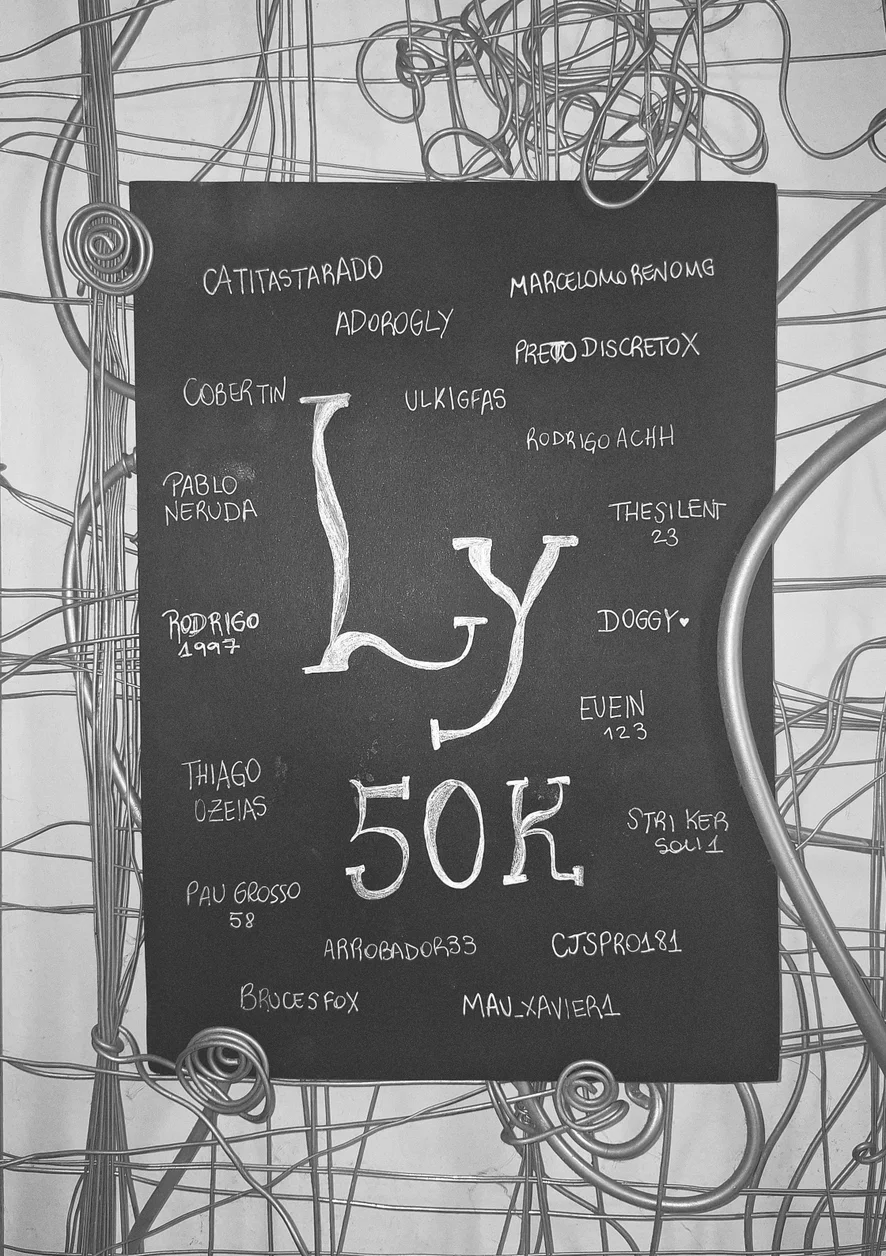 CATITASTARADO
MARCELOMORENOMG
ADOROGLY
PRETO DISCRETOX
COBERTIN
ULKIGFAS
RODRIGO ACHH
PABLO
NERUDA
THESILENT
23
Ly
RODRIGO
1997
DOGGY♥
EUEIN
123
THIAGO
OZEIAS
50K
STRIKER
SOLI1
PAU GROSSO
58
ARROBADOR33
CJSPRO181
BRUCESFOX
MAV_XAVIER1